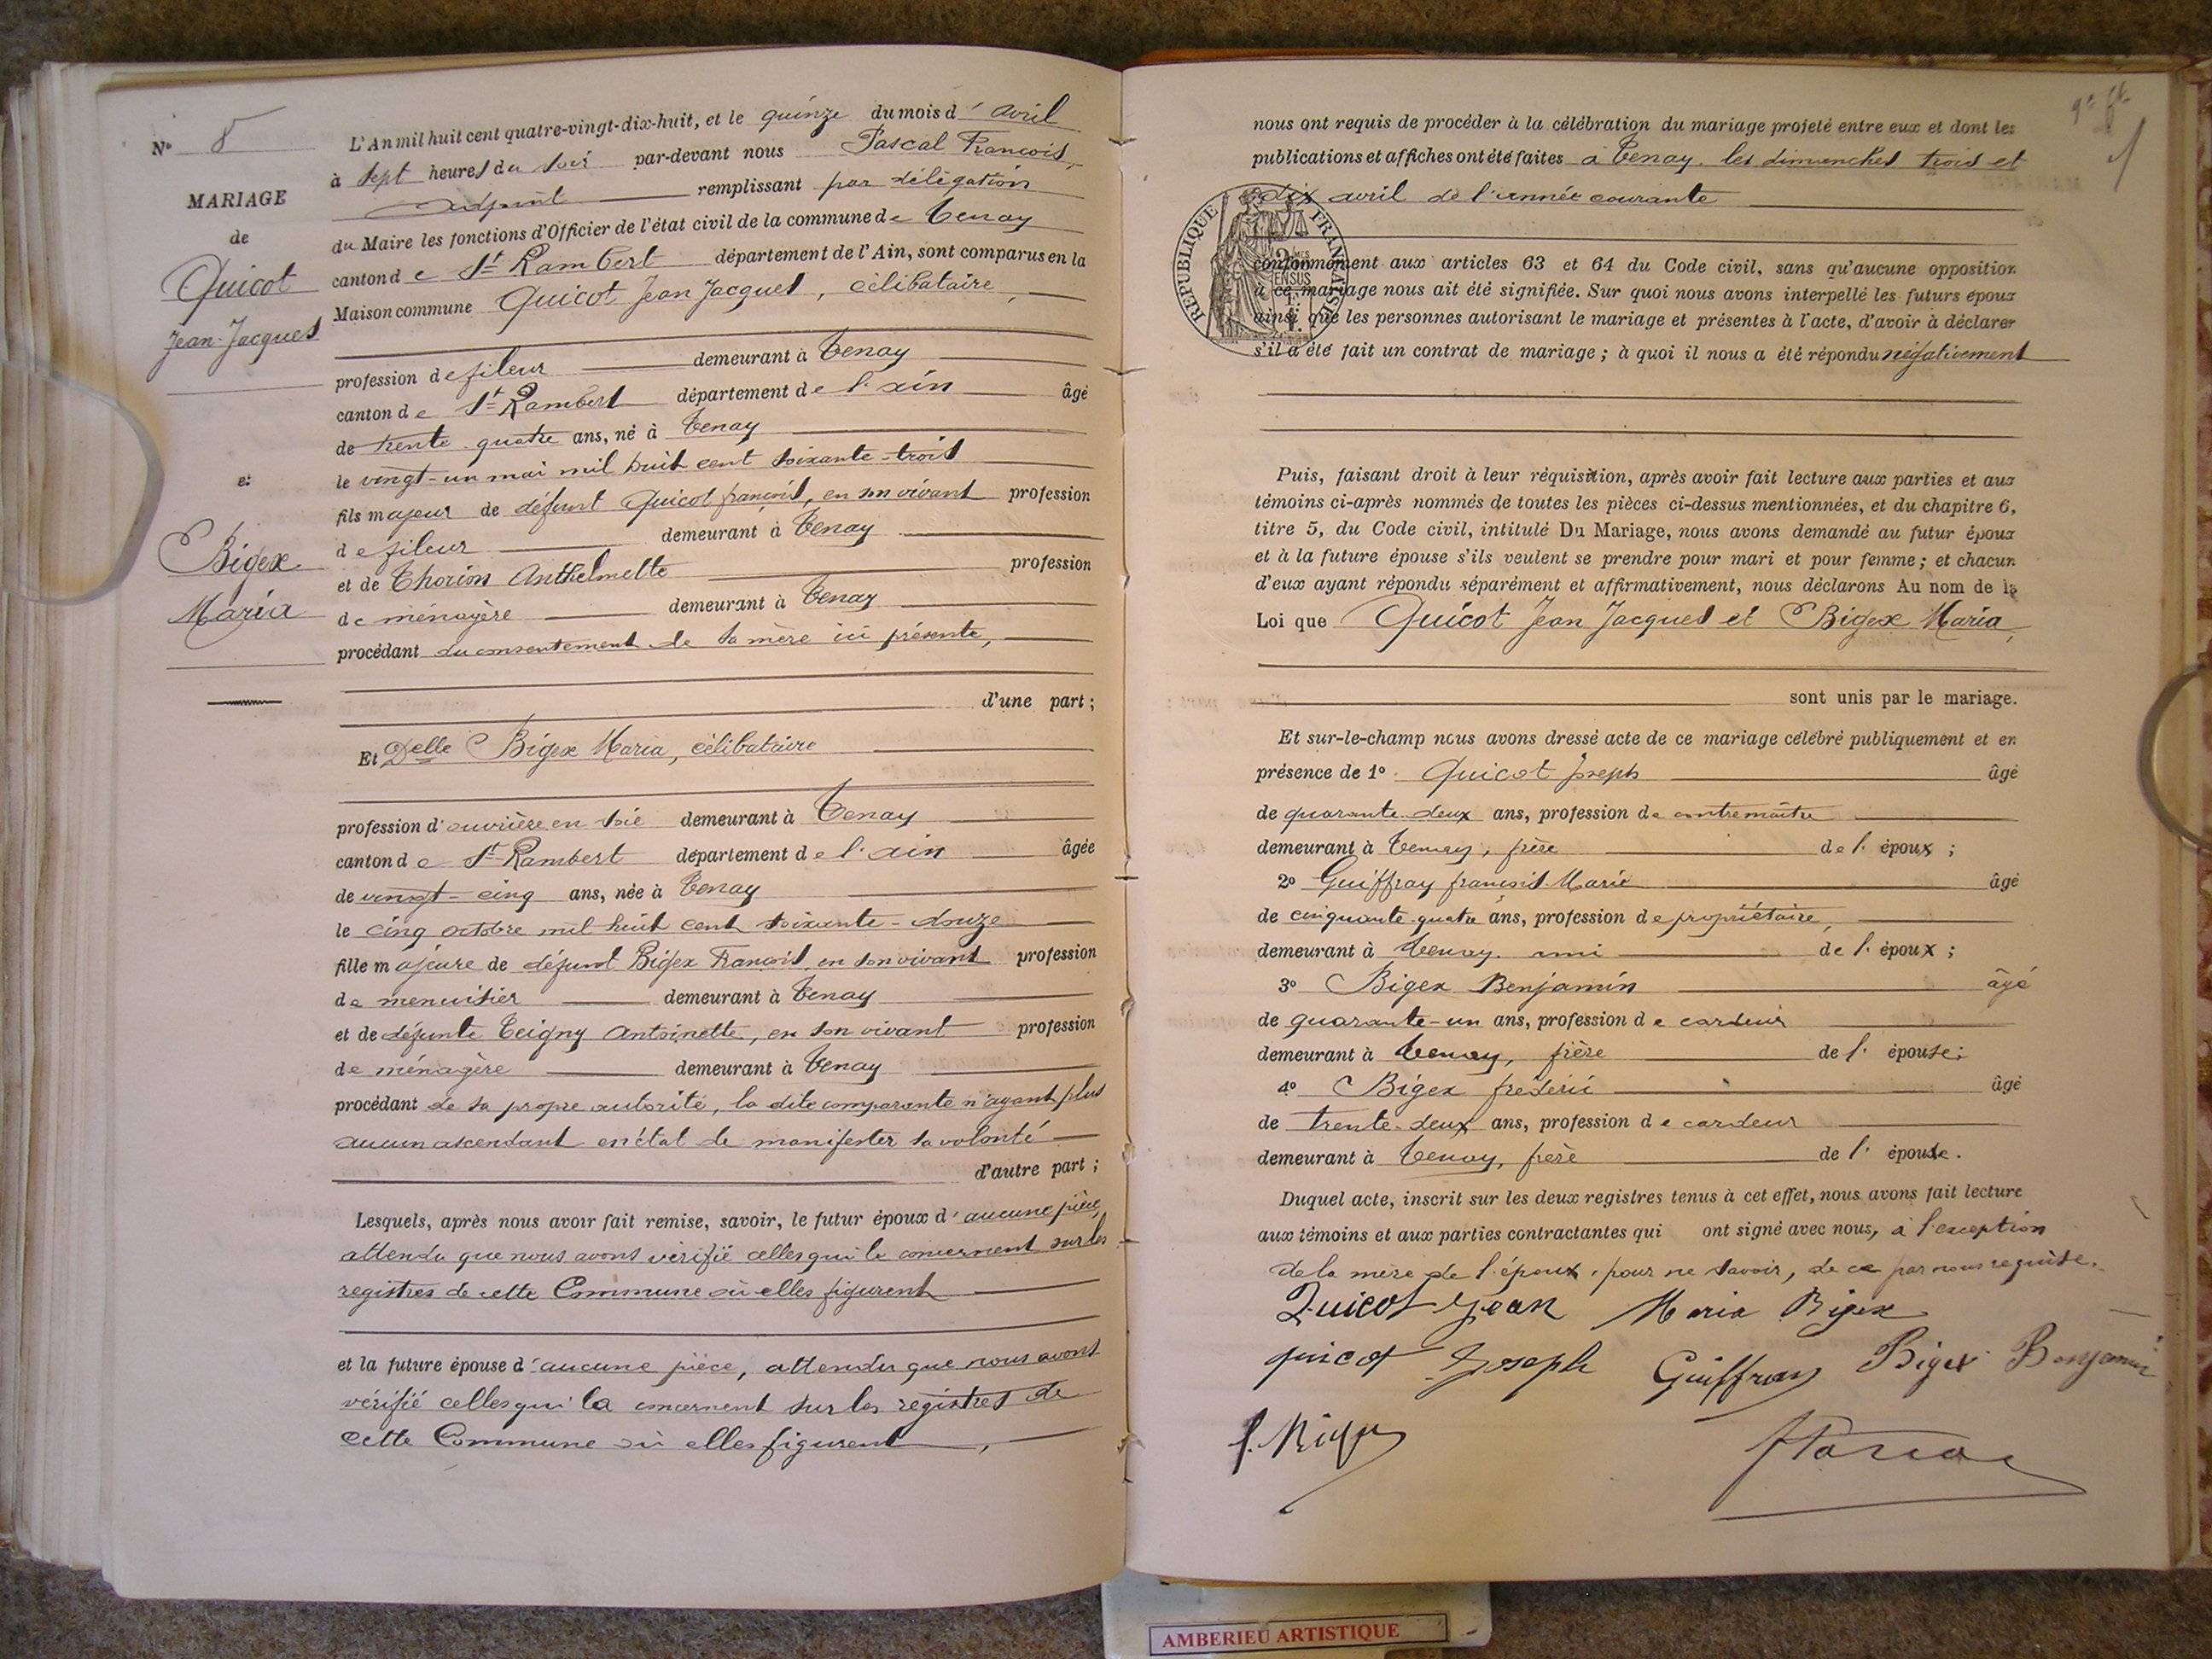 N° 8
MARIAGE
de
Quicot
Jean-Jacques
et
Bigex
Maria
L'An mil huit cent quatre-vingt-dix-huit, et le quinze du mois d'avril
à sept heures du soir par-devant nous Pascal François,
adjoint remplissant par délégation
du Maire les fonctions d'Officier de l'état civil de la commune de Tenay
canton de St Rambert département de l'Ain, sont comparus en la
Maison commune Quicot Jean Jacques, célibataire,
profession de fileur demeurant à Tenay
canton de St Rambert département de l'ain âgé
de trente quatre ans, né à Tenay
le vingt-un mai mil huit cent soixante-trois
fils majeur de défunt Quicot françois, en son vivant profession
de fileur demeurant à Tenay
et de Thorion Anthelmette profession
de ménagère demeurant à Tenay
procédant du consentement de sa mère ici présente,
d'une part ;
Et Delle Bigex Maria, célibataire
profession d'ouvrière en soie demeurant à Tenay
canton de St Rambert département de l'ain âgée
de vingt-cinq ans, née à Tenay
le cinq octobre mil huit cent soixante-douze
fille majeure de défunt Bigex François, en son vivant profession
de menuisier demeurant à Tenay
et de défunte Teigny Antoinette, en son vivant profession
de ménagère demeurant à Tenay
procédant de sa propre autorité, la dite comparante n'ayant plus
aucun ascendant en état de manifester sa volonté
d'autre part ;
Lesquels, après nous avoir fait remise, savoir, le futur époux d'aucune pièce,
attendu que nous avons vérifié celles qui le concernent sur les
registres de cette Commune où elles figurent
et la future épouse d'aucune pièce, attendu que nous avons
vérifié celles qui la concernent sur les registres de
cette Commune où elles figurent,
nous ont requis de procéder à la célébration du mariage projeté entre eux et dont les
publications et affiches ont été faites à Tenay les dimanches trois et
dix avril de l'année courante
REPUBLIQUE FRANÇAISE
conformément aux articles 63 et 64 du Code civil, sans qu'aucune opposition
à ce mariage nous ait été signifiée. Sur quoi nous avons interpellé les futurs époux
ainsi que les personnes autorisant le mariage et présentes à l'acte, d'avoir à déclarer
s'il a été fait un contrat de mariage ; à quoi il nous a été répondu négativement
Puis, faisant droit à leur réquisition, après avoir fait lecture aux parties et aux
témoins ci-après nommés de toutes les pièces ci-dessus mentionnées, et du chapitre 6,
titre 5, du Code civil, intitulé Du Mariage, nous avons demandé au futur époux
et à la future épouse s'ils veulent se prendre pour mari et pour femme ; et chacun
d'eux ayant répondu séparément et affirmativement, nous déclarons Au nom de la
Loi que Quicot Jean Jacques et Bigex Maria,
sont unis par le mariage.
Et sur-le-champ nous avons dressé acte de ce mariage célébré publiquement et en
présence de 1° Quicot Joseph âgé
de quarante-deux ans, profession de contremaître
demeurant à Tenay, frère de l'époux ;
2° Guiffray françois-Marie âgé
de cinquante-quatre ans, profession de propriétaire,
demeurant à Tenay, ami de l'époux ;
3° Bigex Benjamin âgé
de quarante-un ans, profession de cardeur
demeurant à Tenay, frère de l'épouse ;
4° Bigex frédéric âgé
de trente-deux ans, profession de cardeur
demeurant à Tenay, frère de l'épouse.
Duquel acte, inscrit sur les deux registres tenus à cet effet, nous avons fait lecture
aux témoins et aux parties contractantes qui ont signé avec nous, à l'exception
de la mère de l'époux, pour ne savoir, de ce par nous requise.
Quicot Jean Maria Bigex
quicot Joseph Guiffray Bigex Benjamin
f. Bigex
F Pascal
AMBERIEU ARTISTIQUE